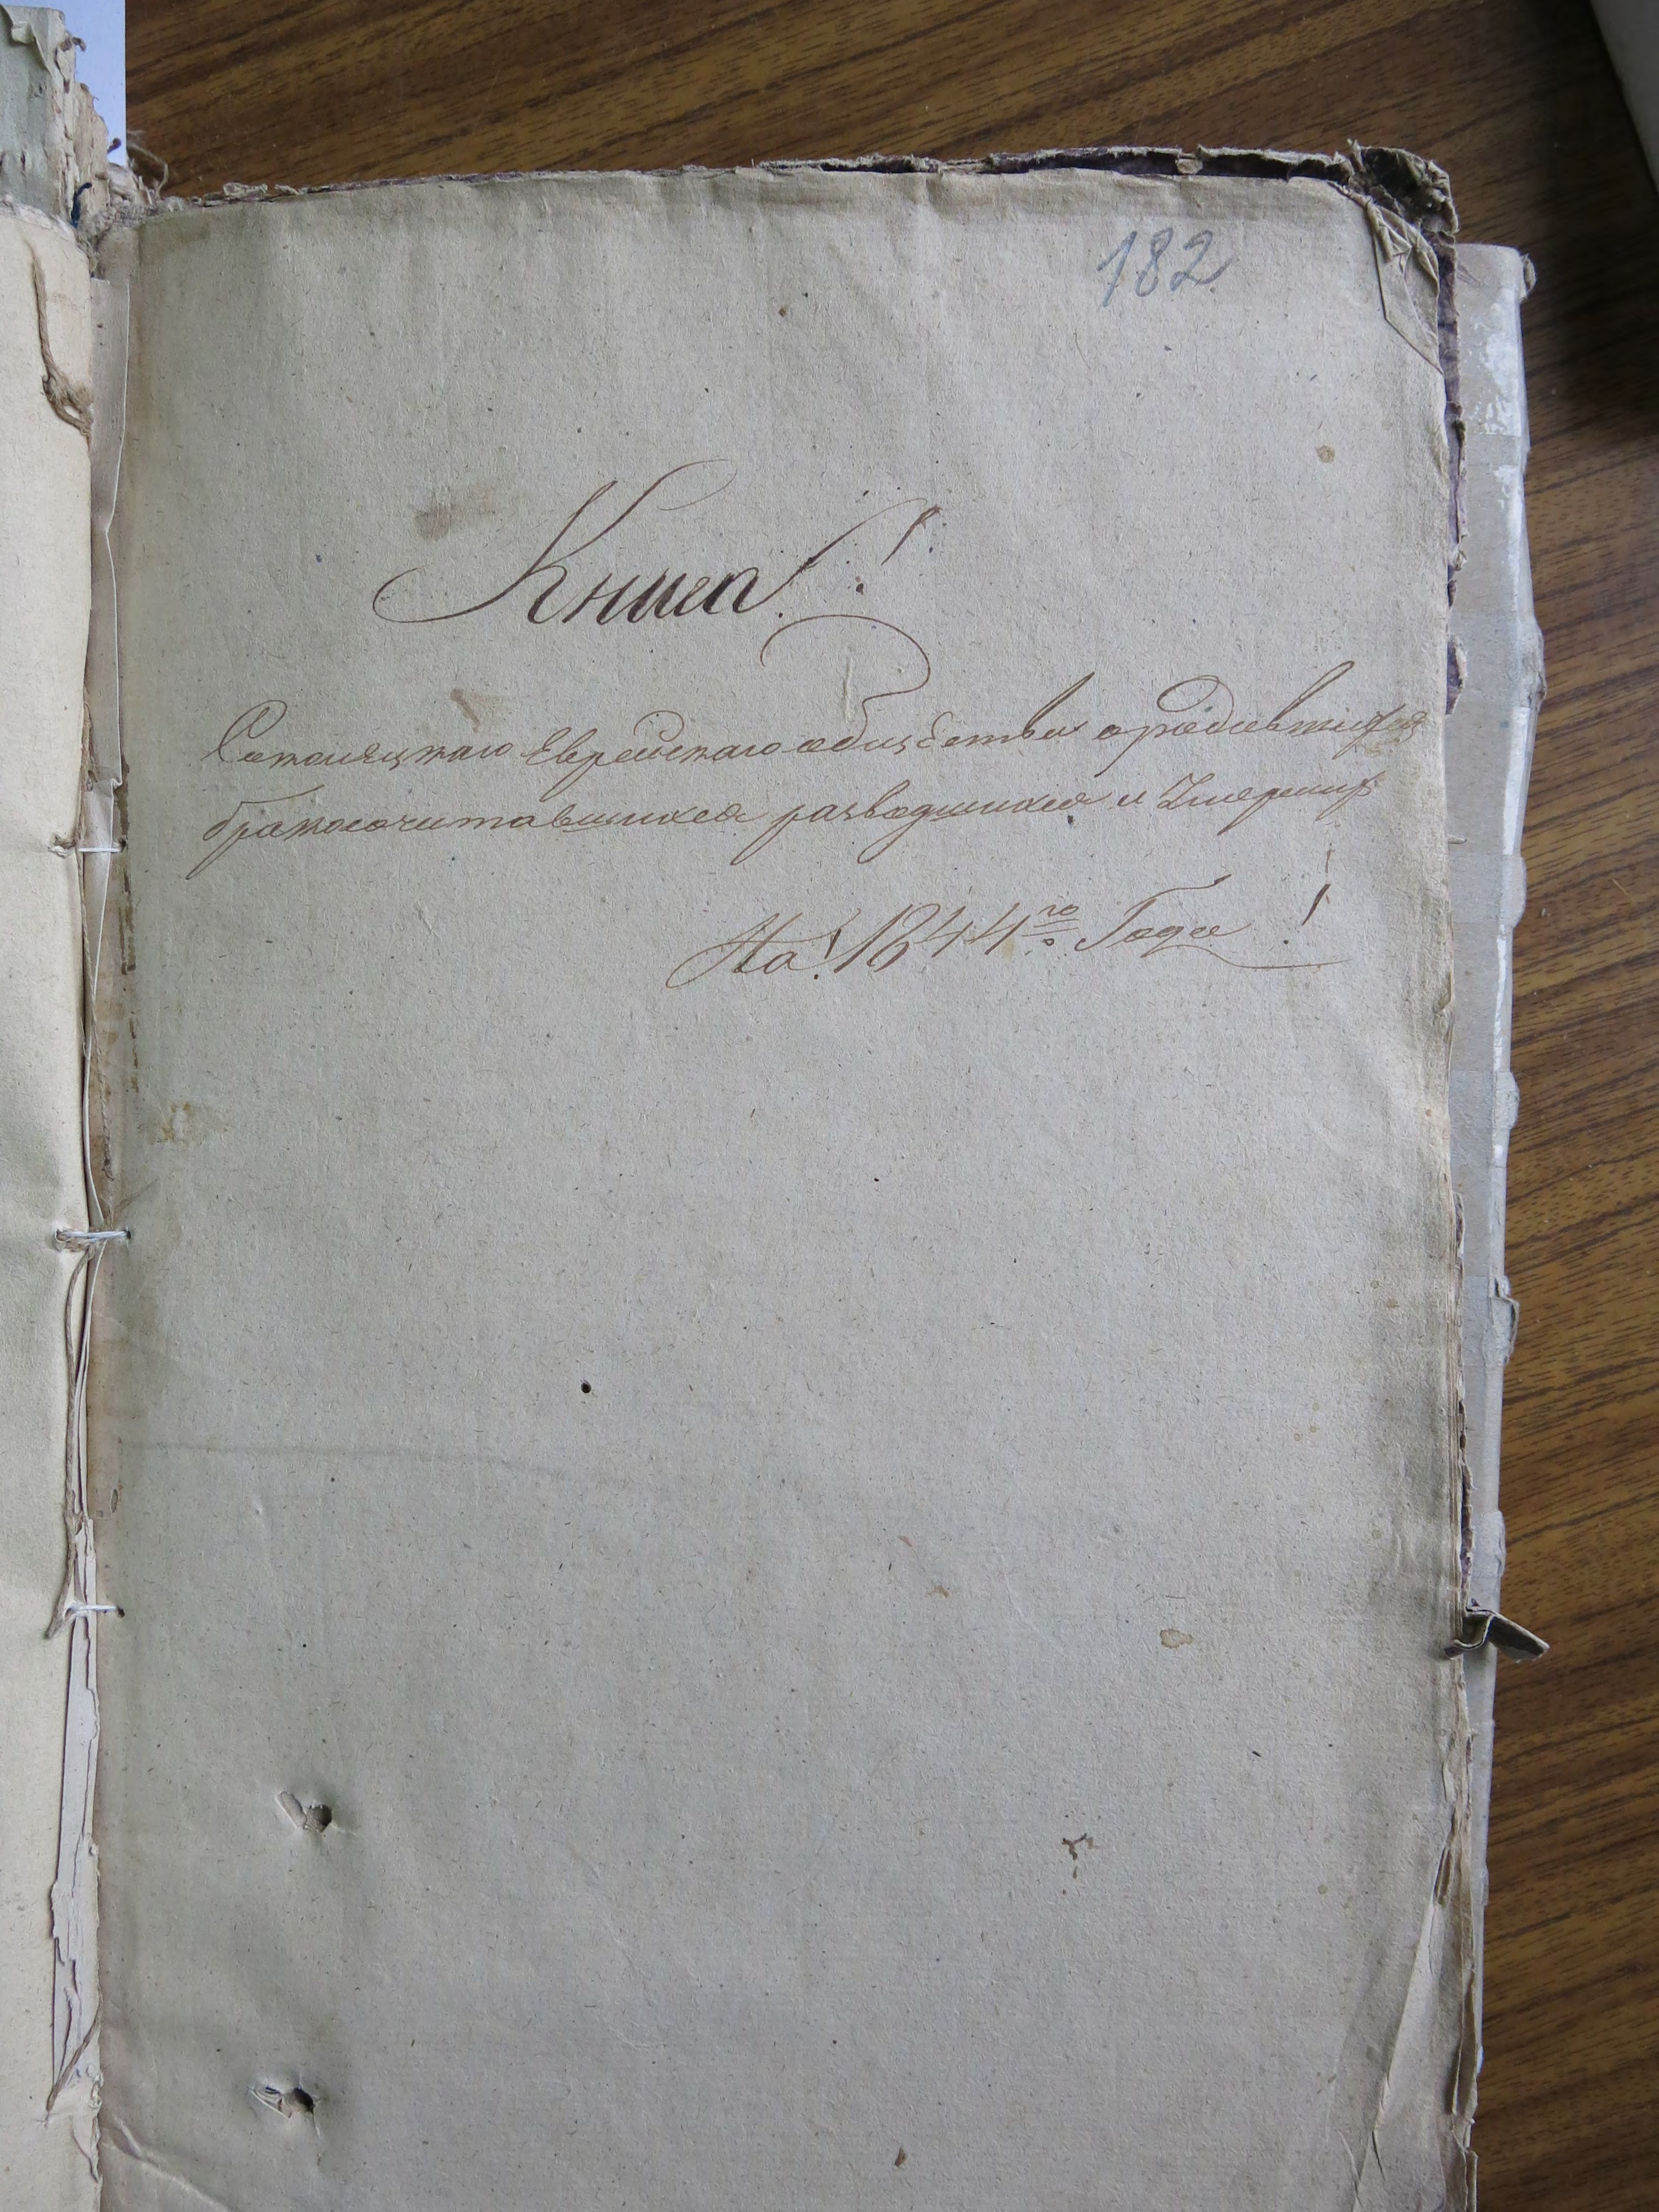 182
Книга!
Еврейскаго общества о родившихся
бракосочитавшихся разводшихся и Умерших
На! 1844го Года!